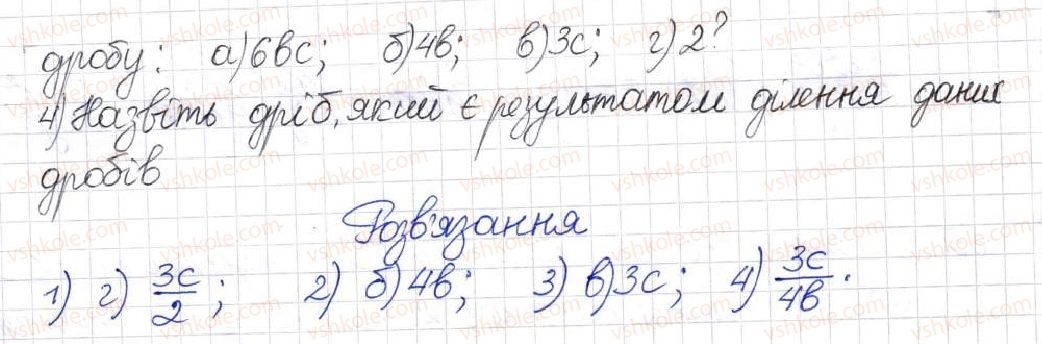 дробу: а) 6вс; б) 4в; в) 3с; г) 2?
4) Назвіть дріб, який є результатом ділення даних
дробів
Розв'язання
1) г) 3с/2; 2) б) 4в; 3) в) 3с; 4) 3с/4в.